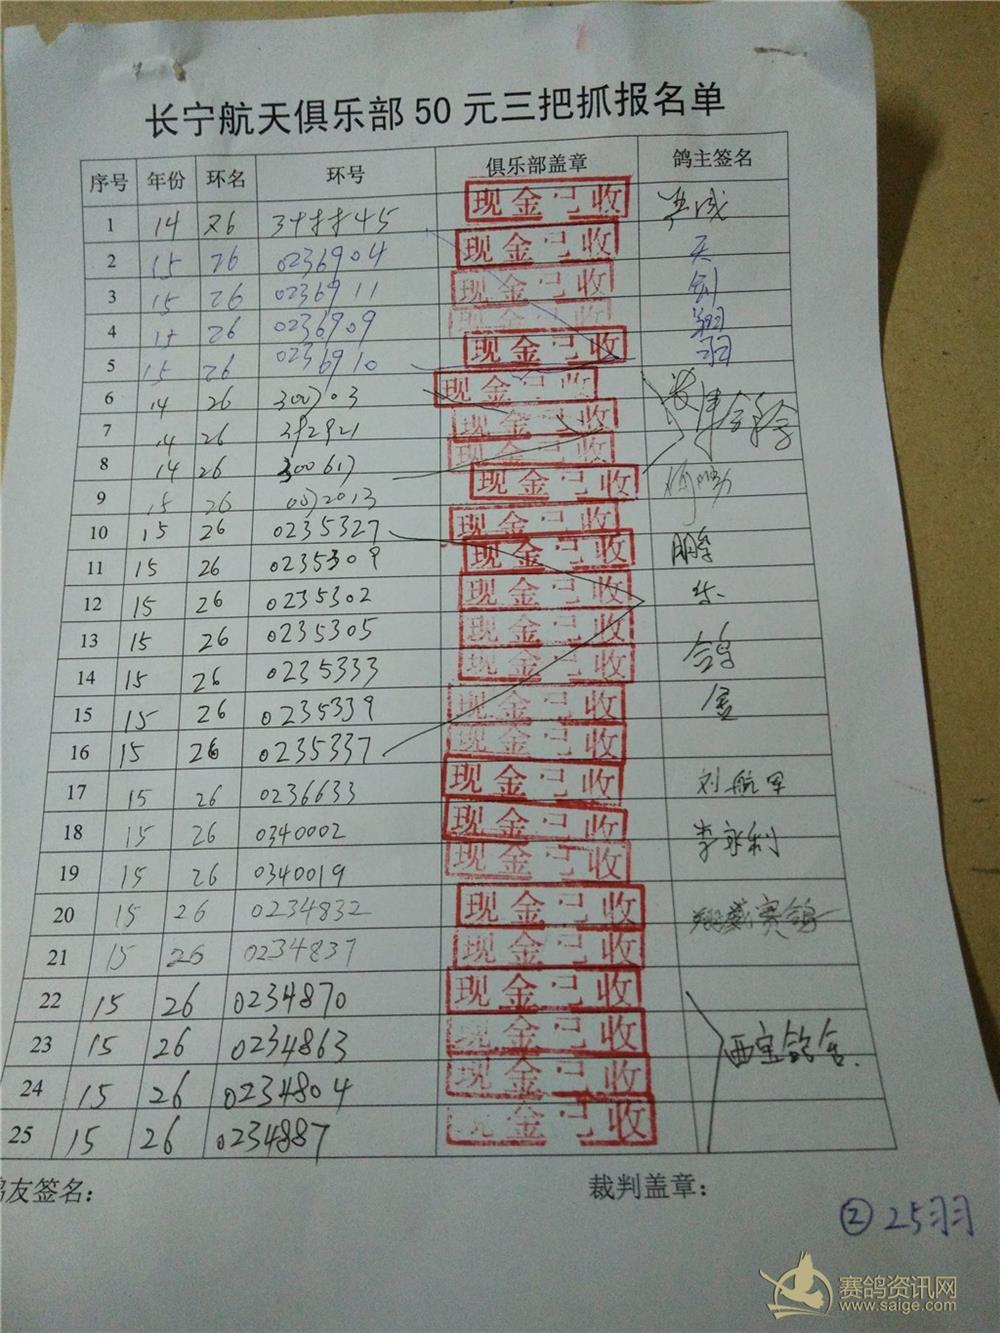 长宁航天俱乐部50元三把抓报名单
序号 年份 环名 环号 俱乐部盖章 鸽主签名
1 14 26 现金已收
2 15 26 0236904 现金已收 天
3 15 26 0236911 现金已收 剑
4 15 26 0236909 现金已收 翔
5 15 26 0236910 现金已收 羽
6 14 26 300703 现金已收
7 14 26 392921 现金已收
8 14 26 300617 现金已收
9 15 26 0072013 现金已收
10 15 26 0235327 现金已收
11 15 26 0235309 现金已收 鹏
12 15 26 0235302 现金已收
13 15 26 0235305 现金已收
14 15 26 0235333 现金已收 鸽
15 15 26 0235339 现金已收 舍
16 15 26 0235337 现金已收
17 15 26 0236633 现金已收 刘航军
18 15 26 0340002 现金已收 李永利
19 15 26 0340019 现金已收
20 15 26 0234832 现金已收 翔威赛鸽
21 15 26 0234837 现金已收
22 15 26 0234870 现金已收
23 15 26 0234863 现金已收 西宝鸽舍
24 15 26 0234804 现金已收
25 15 26 0234887 现金已收
鸽友签名： 裁判盖章：
② 25羽
赛鸽资讯网
www.saige.com